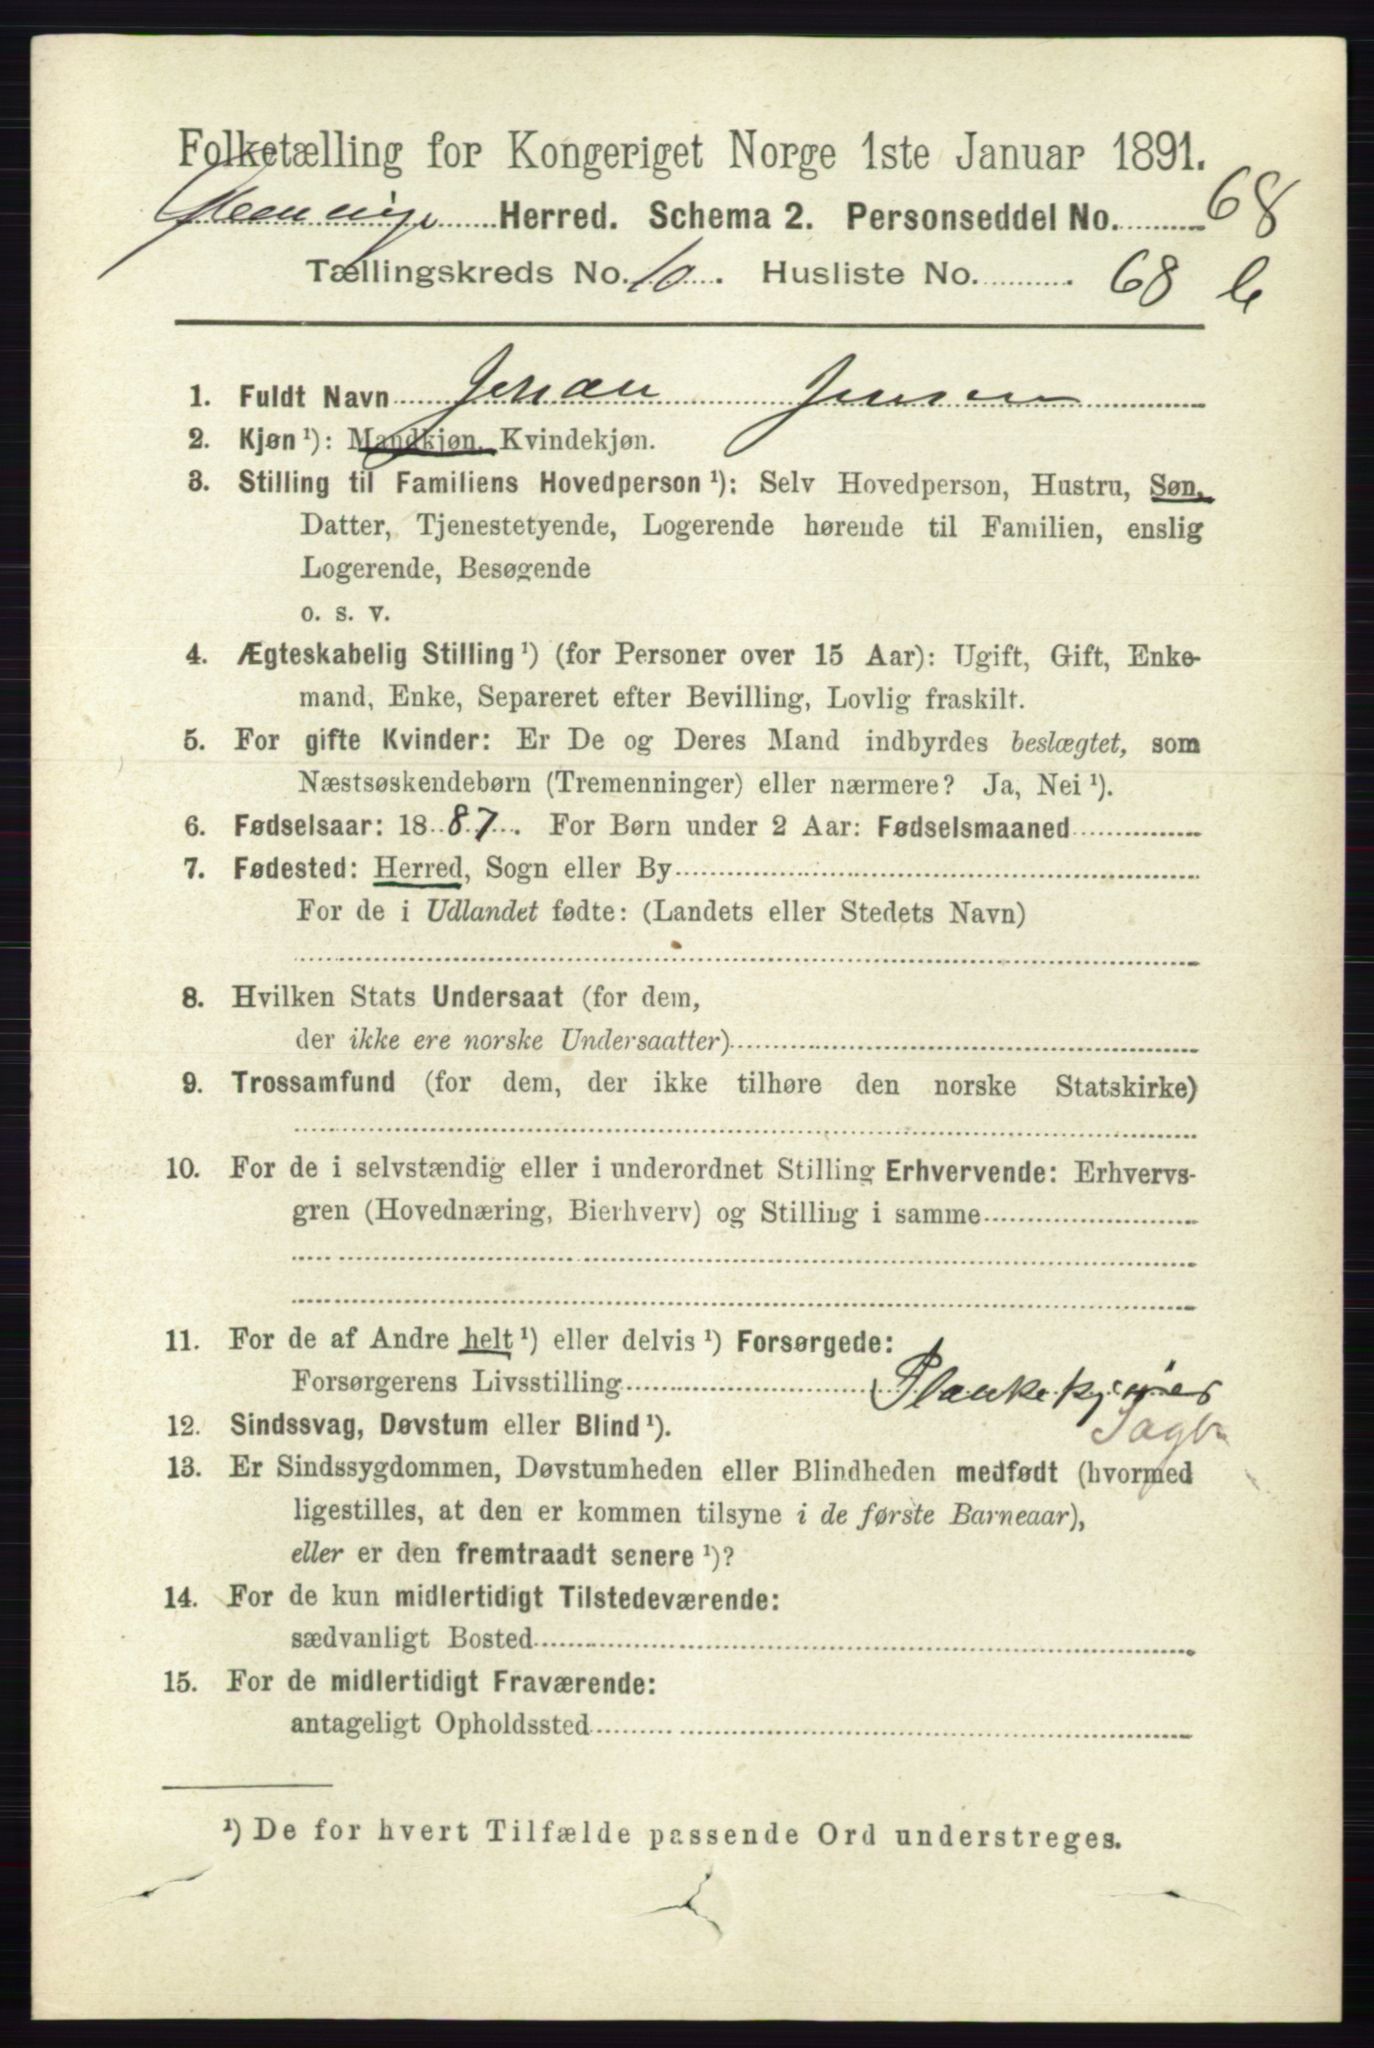 Folketælling for Kongeriget Norge 1ste Januar 1891.
Herred. Schema 2. Personseddel No. 68
Tællingskreds No. 10. Husliste No. 68 b
1. Fuldt Navn Johan Jensen
2. Kjøn ¹): Mandkjøn. Kvindekjøn.
3. Stilling til Familiens Hovedperson ¹): Selv Hovedperson, Hustru, Søn,
Datter, Tjenestetyende, Logerende hørende til Familien, enslig
Logerende, Besøgende
o. s. v.
4. Ægteskabelig Stilling ¹) (for Personer over 15 Aar): Ugift, Gift, Enke-
mand, Enke, Separeret efter Bevilling, Lovlig fraskilt.
5. For gifte Kvinder: Er De og Deres Mand indbyrdes beslægtet, som
Næstsøskendebørn (Tremenninger) eller nærmere? Ja, Nei ¹).
6. Fødselsaar: 1887. For Børn under 2 Aar: Fødselsmaaned
7. Fødested: Herred, Sogn eller By
For de i Udlandet fødte: (Landets eller Stedets Navn)
8. Hvilken Stats Undersaat (for dem,
der ikke ere norske Undersaatter)
9. Trossamfund (for dem, der ikke tilhøre den norske Statskirke)
10. For de i selvstændig eller i underordnet Stilling Erhvervende: Erhvervs-
gren (Hovednæring, Bierhverv) og Stilling i samme
11. For de af Andre helt ¹) eller delvis ¹) Forsørgede:
Forsørgerens Livsstilling Plankekjører
Sagbr
12. Sindssvag, Døvstum eller Blind ¹).
13. Er Sindssygdommen, Døvstumheden eller Blindheden medfødt (hvormed
ligestilles, at den er kommen tilsyne i de første Barneaar),
eller er den fremtraadt senere ¹)?
14. For de kun midlertidigt Tilstedeværende:
sædvanligt Bosted
15. For de midlertidigt Fraværende:
antageligt Opholdssted
¹) De for hvert Tilfælde passende Ord understreges.